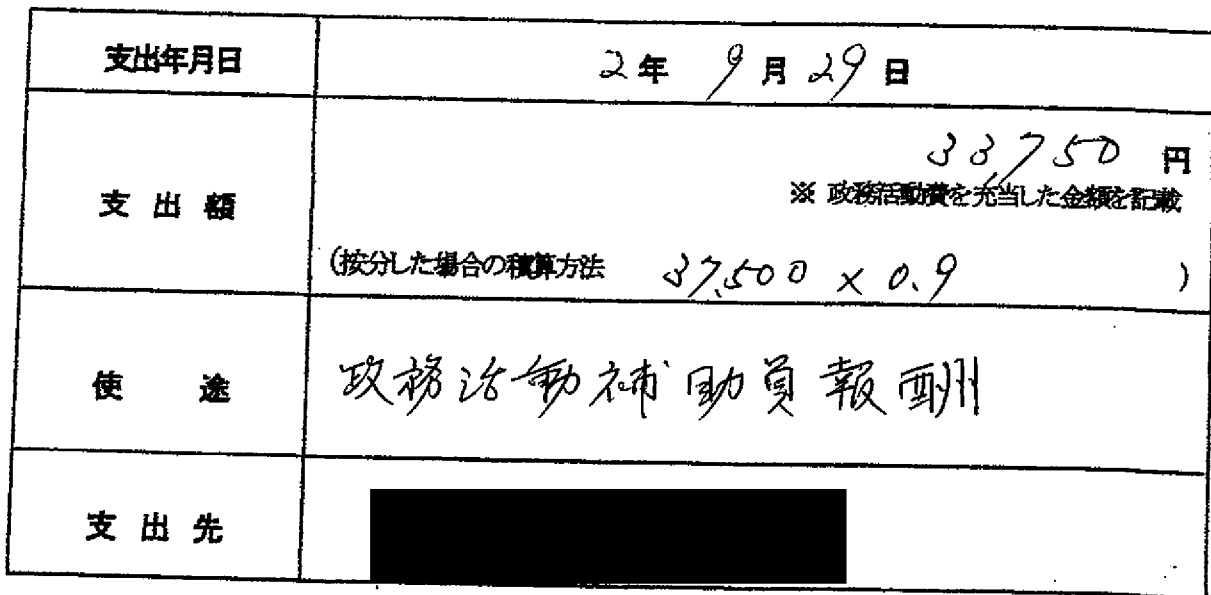 支出年月日 2年 9月29日
33,750 円
支出額
※ 政務活動費を充当した金額を記載
(按分した場合の積算方法 37,500 × 0.9 )
使途 政務活動補助員報酬
支出先